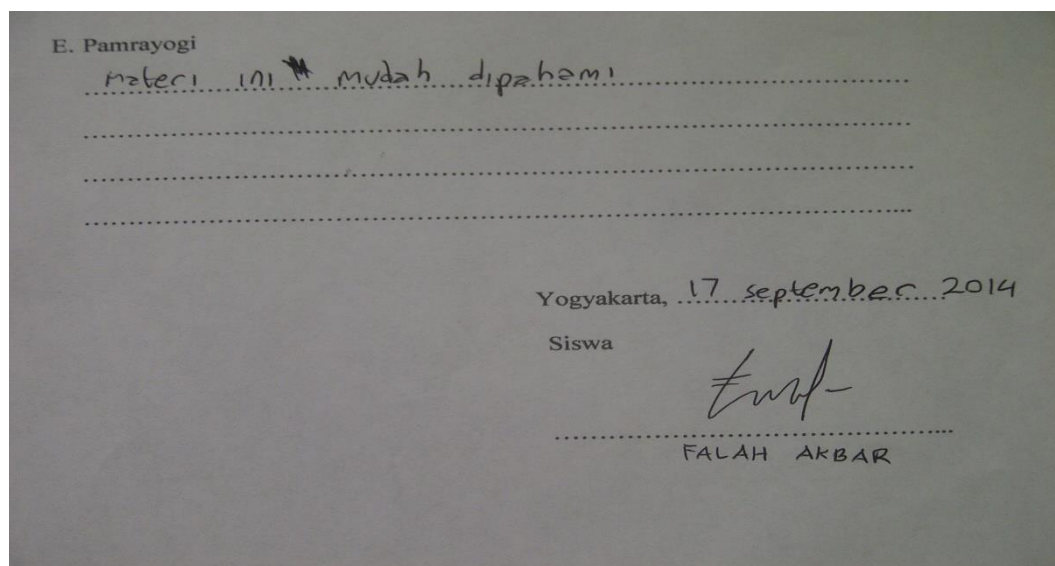 E. Pamrayogi
materi ini mudah dipahami
Yogyakarta, 17 september 2014
Siswa
FALAH AKBAR